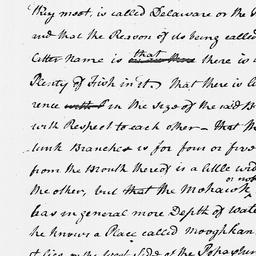 they meet, is called Delaware or the
and that the Reason of its being called
latter Name is that there is a
Plenty of Fish in it. That there is a
rence in the Size of the said B
with Respect to each other – that the
unk Branches is for four or five
from the Mouth thereof is a little wid
the other, but that the Mohawk
has in general more Depth of Wate
he knows a Place called
it lies on the West Side of the